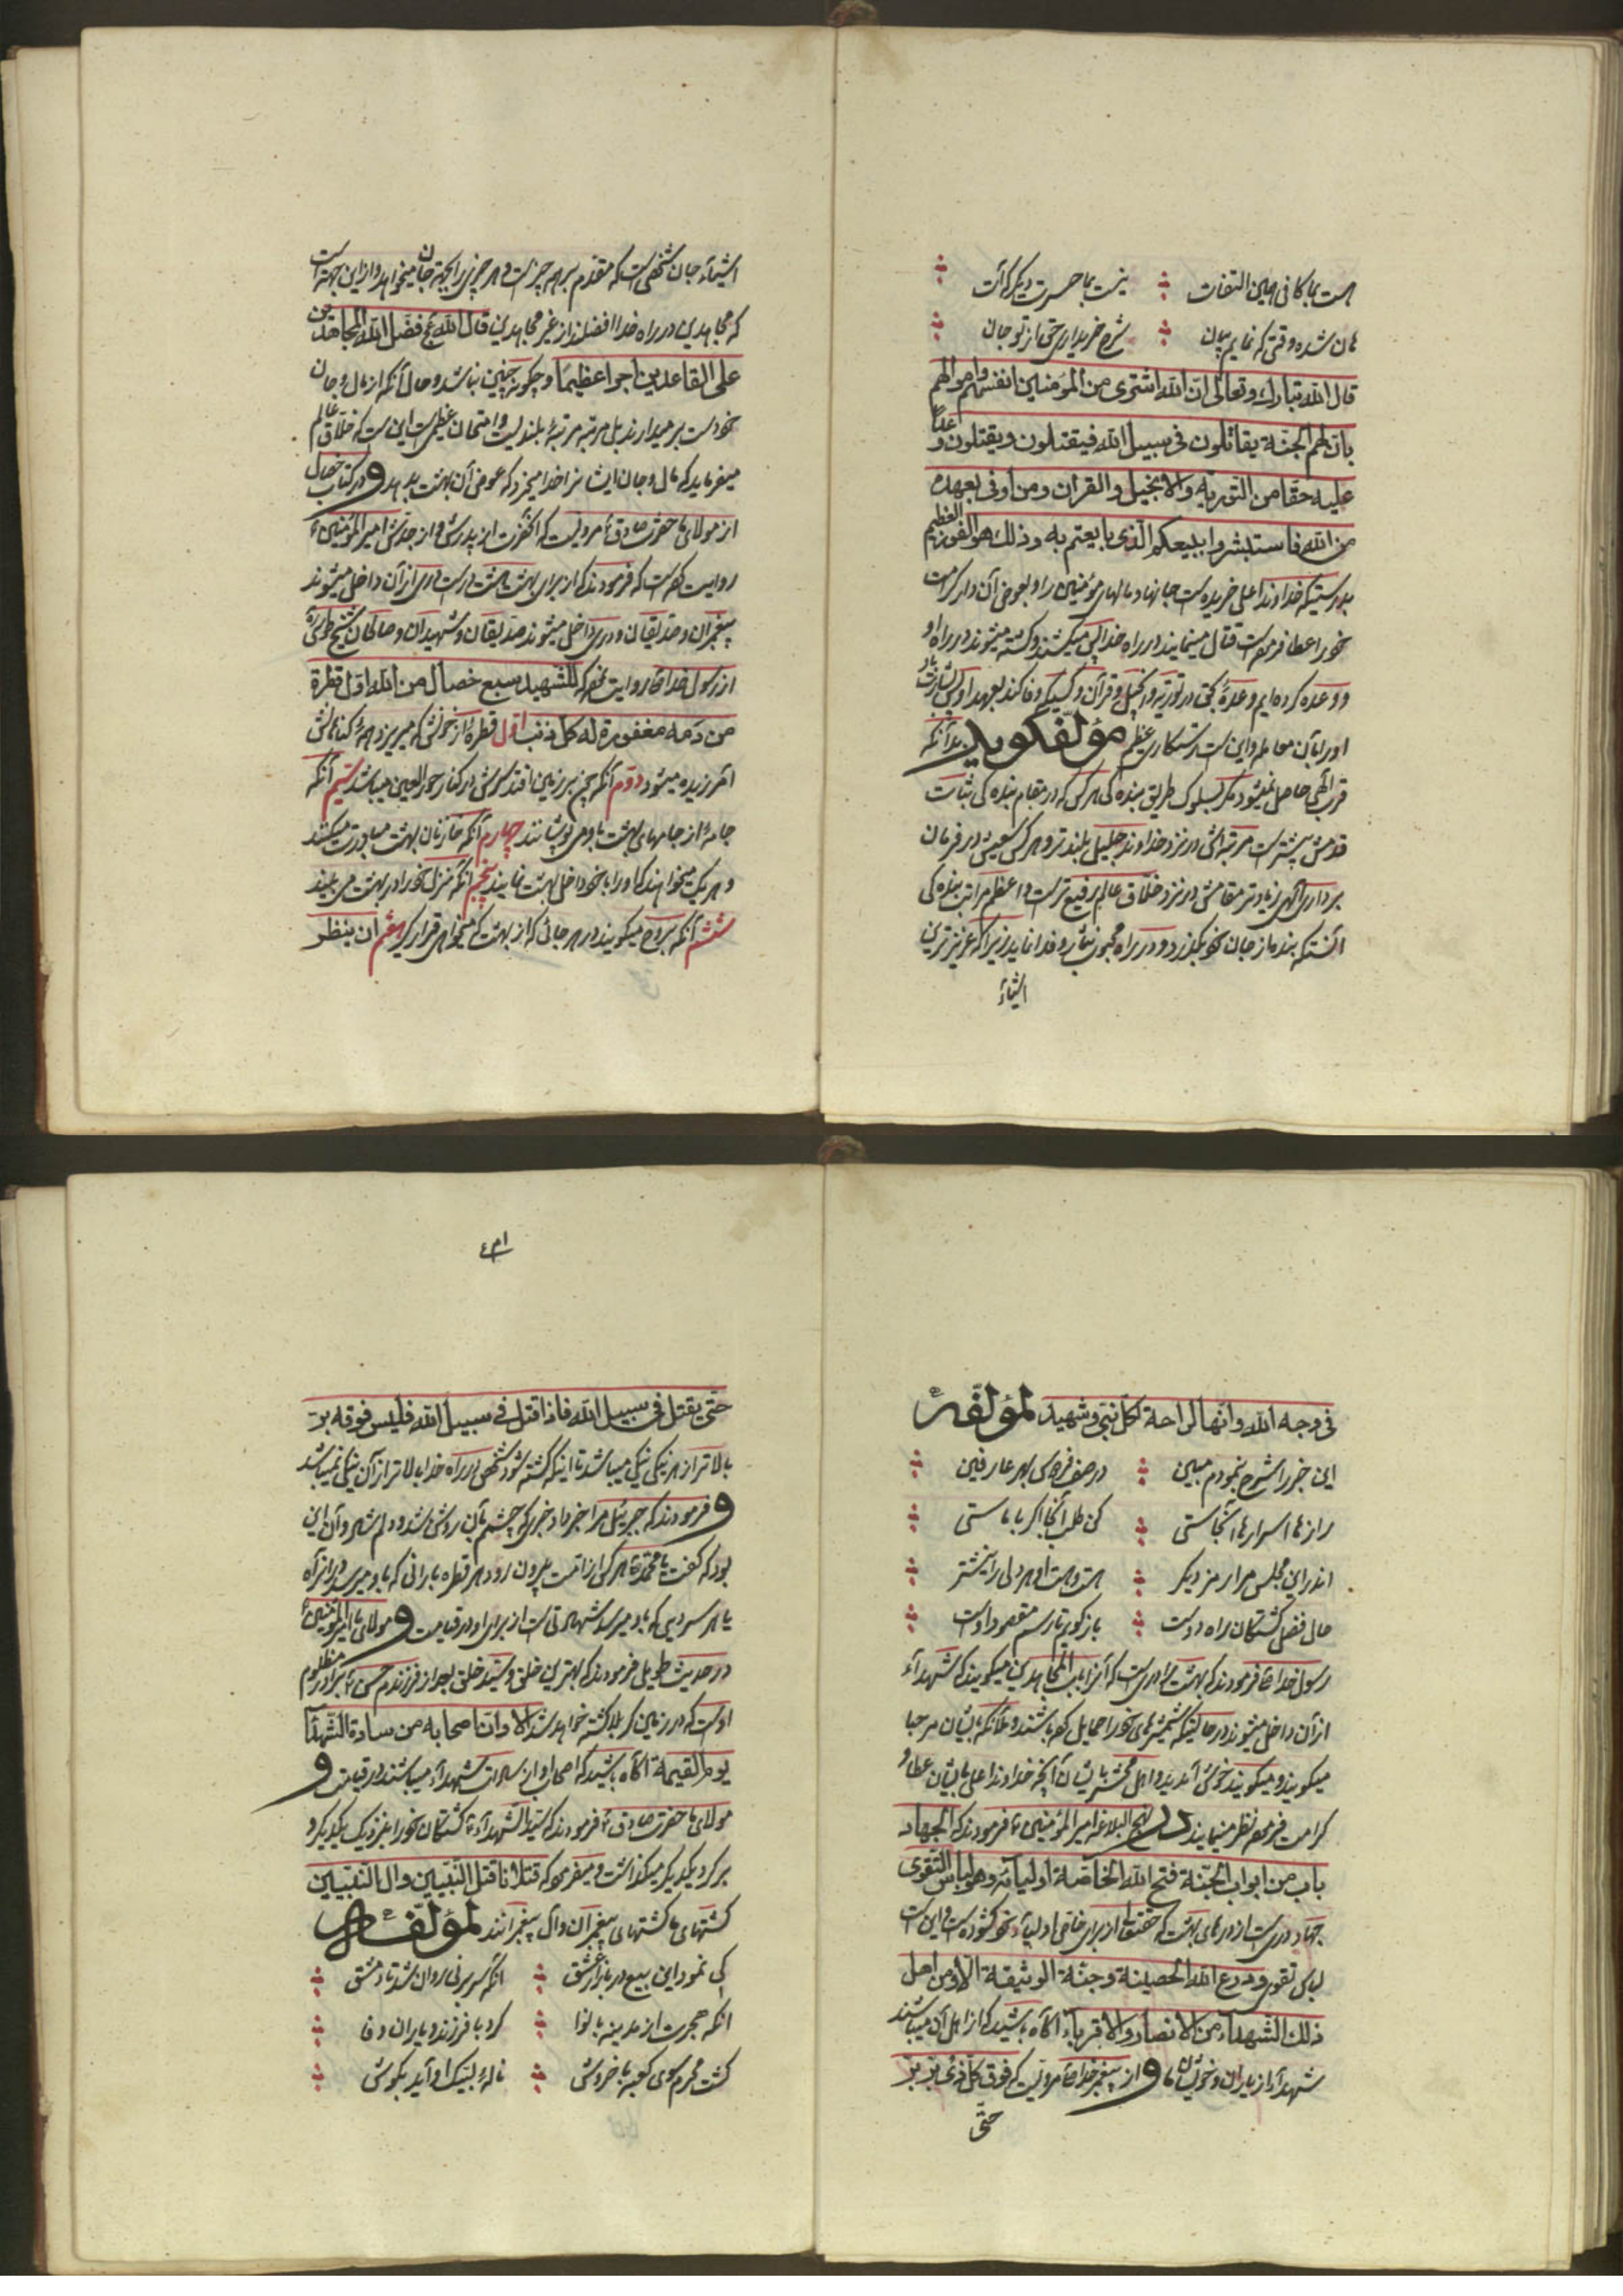 هست بما کافی همین التفات نیست بما حسرت دیگر کرات
هان شده وقتی که نمایم بیان شرح خریداری حق از تو جان
قال الله تبارك وتعالی ان الله اشتری من المؤمنین انفسهم واموالهم
بان لهم الجنة یقاتلون فی سبیل الله فیقتلون ویقتلون وعداً
علیه حقا من التوریه والانجیل والقران ومن اوفی بعهده
من الله فاستبشروا ببیعکم الذی بایعتم به وذلك هو الفوز العظیم
بدرستیکه خداوند اعلی خریده است جانها و مالهای مؤمنین را و بعوض آن دار کرامت
خود عطا فرموده است قتال مینمایند در راه خدا پس میکشند و کشته میشوند در راه او
و وعده کرده‌ایم وعدهٔ حق در توریة و انجیل و قرآن و کسیکه وفا کند بعهد او پس بشارت باد
او را بآن معامله و این است رستگاری عظیم مؤلف گوید بدانکه
قرب الهی حاصل نمیشود مگر بسلوک طریق بندگی هر کس که در مقام بندگی ثبات
قدمش بیشتر است مرتبه‌اش در نزد خداوند جلیل بلندتر و هر کس سعیش در فرمان
برداری الهی زیادتر مقامش در نزد خلاق عالم رفیع‌تر است و اعظم مراتب بندگی
آنستکه بنده از جان خود بگذرد و در راه محبوب نثار و فدا نماید زیرا که عزیزترین
اشیاء
اشیاء جان شخص است که مقدم بر هر چیز است و هر چیزی را بجهة جان میخواهد و از این جهة است
که مجاهدین در راه خدا افضلند از غیر مجاهدین قال الله عج فضل الله المجاهدین
علی القاعدین اجرا عظیما و چگونه چنین نباشد و حال آنکه از مال و جان
خود دست بر میدارند بل مرتبه مرتبهٔ بلندیست و امتحان عظیمی است این است که خلاق عالم
میفرماید که مال و جان ایشانرا خدا میخرد که عوض آن بهشت بدهد و در کتاب خصال
از مولای ما حضرت صادق ع مرویست که آنحضرت از پدرش و از جدش امیر المؤمنین ع
روایت کرده است که فرمودند که از برای بهشت هشت در است دری از آن داخل میشوند
پیغمبران و صدیقان و دری داخل میشوند صدیقان و شهیدان و صالحان شیخ طوسی ره
از رسول خدا ص روایت نموده که للشهید سبع خصال من الله اول قطرة
من دمه مغفورة له کل ذنب اول قطرهٔ از خونش که میریزد همهٔ گناهانش
آمرزیده میشود دوم آنکه چون بر زمین افتد سرش در کنار حور العین میباشد سیم آنکه
جامهٔ از جامهای بهشت باو می‌پوشانند چهارم آنکه خازنان بهشت مبادرت میکنند
و هر یک میخواهند که او را با خود داخل بهشت نمایند پنجم آنکه منزل خود را در بهشت می بیند
ششم آنکه بروح میگویند در هر جائی که از بهشت که میخواهی قرار گیر هفتم ان ینظر
فی وجه الله وانها لراحة لکل نبی وشهید لمؤلفه
این خبر را شرح نمودم مبین در صف فردوس بهر عارفین
رازها اسرارها آنجاستی کن طلب آنجا اگر با ماستی
اندر این مجلس مرا رمز دیگر هست و هست او هر دلی را نیشتر
حال فضل کشتگان راه دوست بازگویم تا رسم مقصود اوست
رسول خدا ص فرمودند که بهشت را دری است که آنرا باب المجاهدین میگویند که شهداء
از آن داخل میشوند در حالتیکه شمشیرهای خود را حمایل کرده باشند و ملائکه بایشان مرحبا
میگویند و میگویند خوش آمدید و اهل محشر بایشان آنچه خداوند اعلی بایشان عطا و
کرامت فرموده نظر مینمایند در نهج البلاغه امیر المؤمنین ع فرمودند که الجهاد
باب من ابواب الجنة فتح الله لخاصة اولیائه وهو لباس التقوی
جهاد دری است از درهای بهشت که حقتعالی از برای خاص اولیاء خود گشوده است و این است
لباس تقوی و درع الله الحصینة وجنة الوثیقة الا ومن اهل
ذلك الشهداء من الانصار والاقرباء آگاه باشید که از اهل آن میباشند
شهداء از یاران و خویشان ما و از پیغمبر خدا ص مرویست که فوق کل ذی بر بر
حتی
۴۸۱
حتی یقتل فی سبیل الله فاذا قتل فی سبیل الله فلیس فوقه بر
بالاتر از هر نیکی نیکی میباشد تا اینکه کشته شود شخصی در راه خدا بالاتر از آن نیکی نمیباشد
و فرمودند که جبرئیل مرا خبر داد خبری که چشمم بآن روشن شد و دلم شاد و آن این
بود که گفت یا محمد ص هر کس از امت بیرون رود هر قطره بارانی که باو میرسد در آنراه
یا هر سردیی که باو میرسد شهادتی است از برای او در قیامت و مولای ما امیر المؤمنین ع
در حدیث طویل فرمودند که بهترین خلق و سید خلق بعد از فرزندم حسن ع برادر مظلوم
اوست که در زمین کربلا کشته خواهد شد الا وانا صحابه من سادة الشهدا
یوم القیمة آگاه باشید که اصحاب او از سادات شهداء میباشند در قیامت و
مولای ما حضرت صادق ع فرمودند که سید الشهداء ع کشتگان خود را بنزدیک یکدیگر و
بر گرد یکدیگر میگذاشت و میفرمود که قتلانا قتل النبیین وال النبیین
کشتهای ما کشتهای پیغمبران و آل پیغمبرانند لمؤلفه
کی نمود این بیع در بازار عشق آنکه سر بر نی روان شد تا دمشق
آنکه هجرت از مدینه با نوا کرد با فرزند و یاران وفا
گشت محرم سوی کعبه با خروش نالهٔ لبیک او آید بگوش